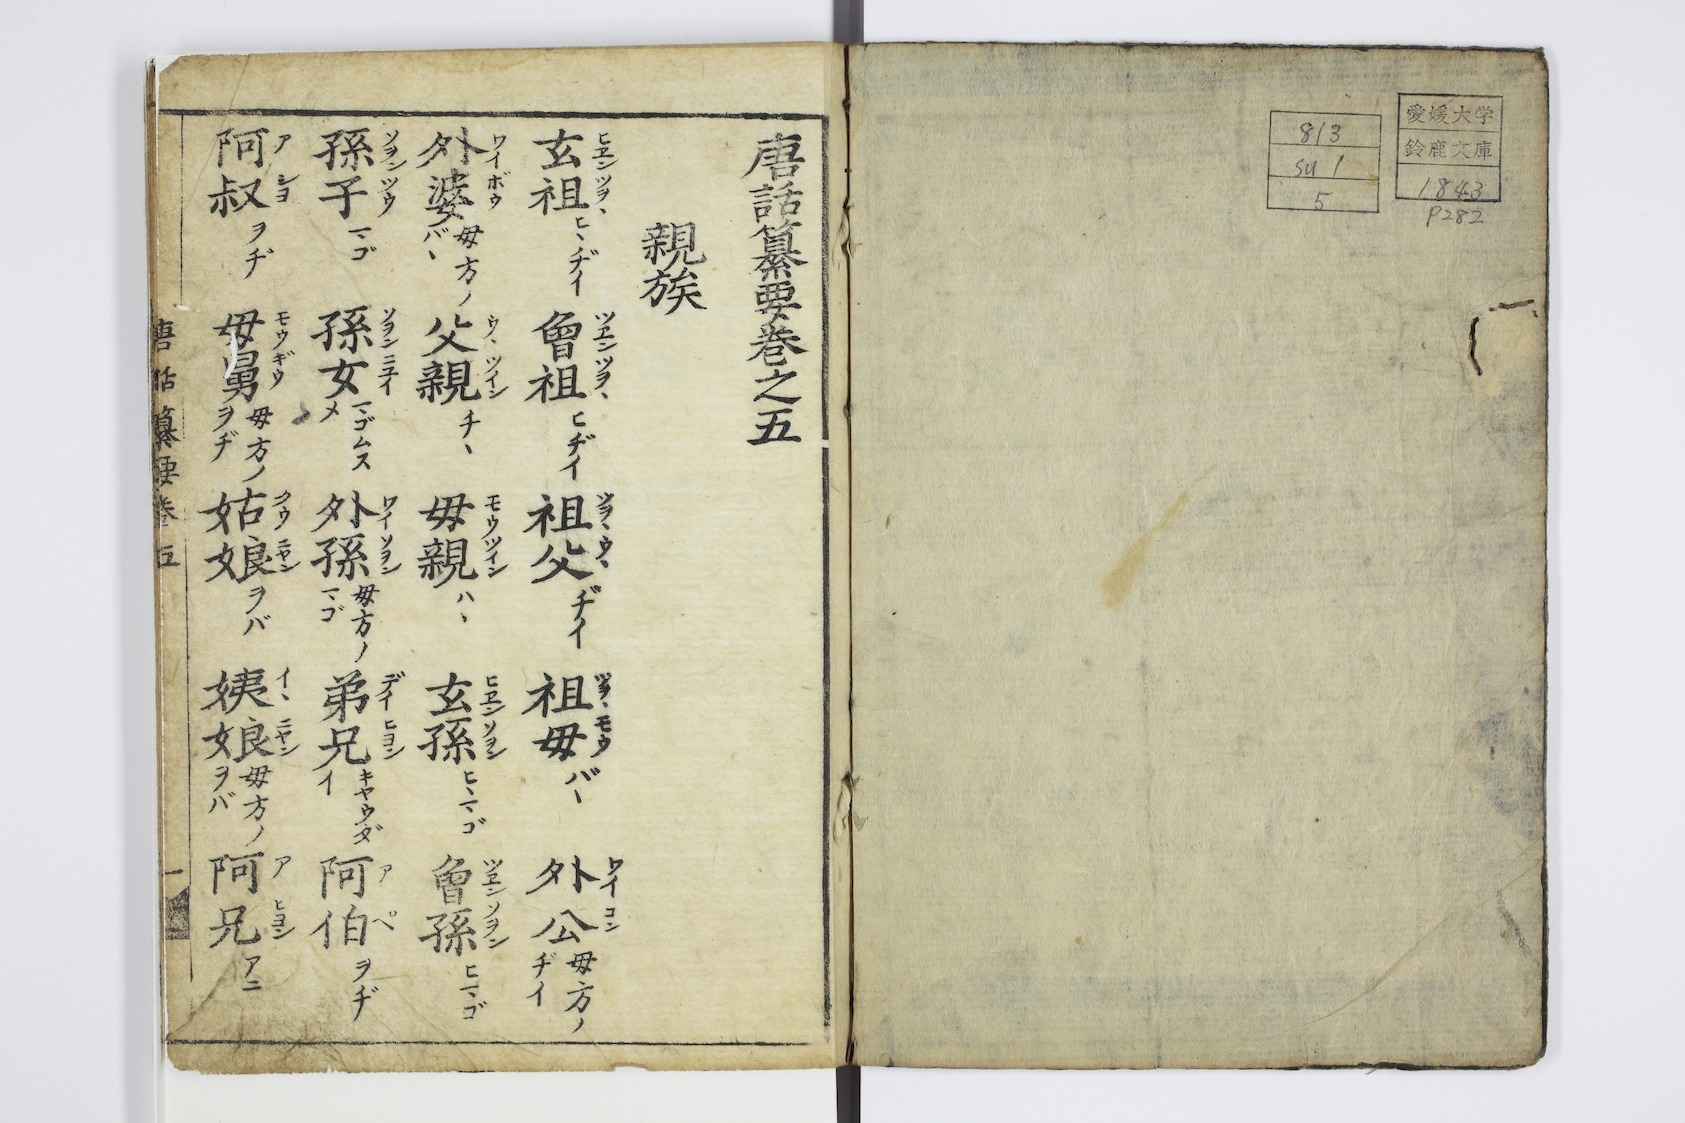 愛媛大学
鈴鹿文庫
1843
P282
813
su 1
5
唐話纂要巻之五
親族
玄祖 ヒヱンツヲヽ ヒヽヂイ 曾祖 ツヱンツヲヽ ヒヂイ 祖父 ツヲヽウヽ ヂイ 祖母 ツヲヽモウ バヽ 外公 ワイコン 母方ノヂイ
外婆 ワイボウ 母方ノバヽ 父親 ウヽツイン チヽ 母親 モウツイン ハヽ 玄孫 ヒヱンソヲン ヒヽマゴ 曾孫 ツヱンソヲン ヒマゴ
孫子 ソヲンツウ マゴ 孫女 ソヲンニユイ マゴムスメ 外孫 ワイソヲン 母方ノマゴ 弟兄 デイヒヨン キヤウダイ 阿伯 アペ ヲヂ
阿叔 アシヨ ヲヂ 母舅 モウギウ 母方ノヲヂ 姑娘 クウニヤン ヲバ 姨娘 イヽニヤン 母方ノヲバ 阿兄 アヒヨン アニ
唐話纂要巻五 一